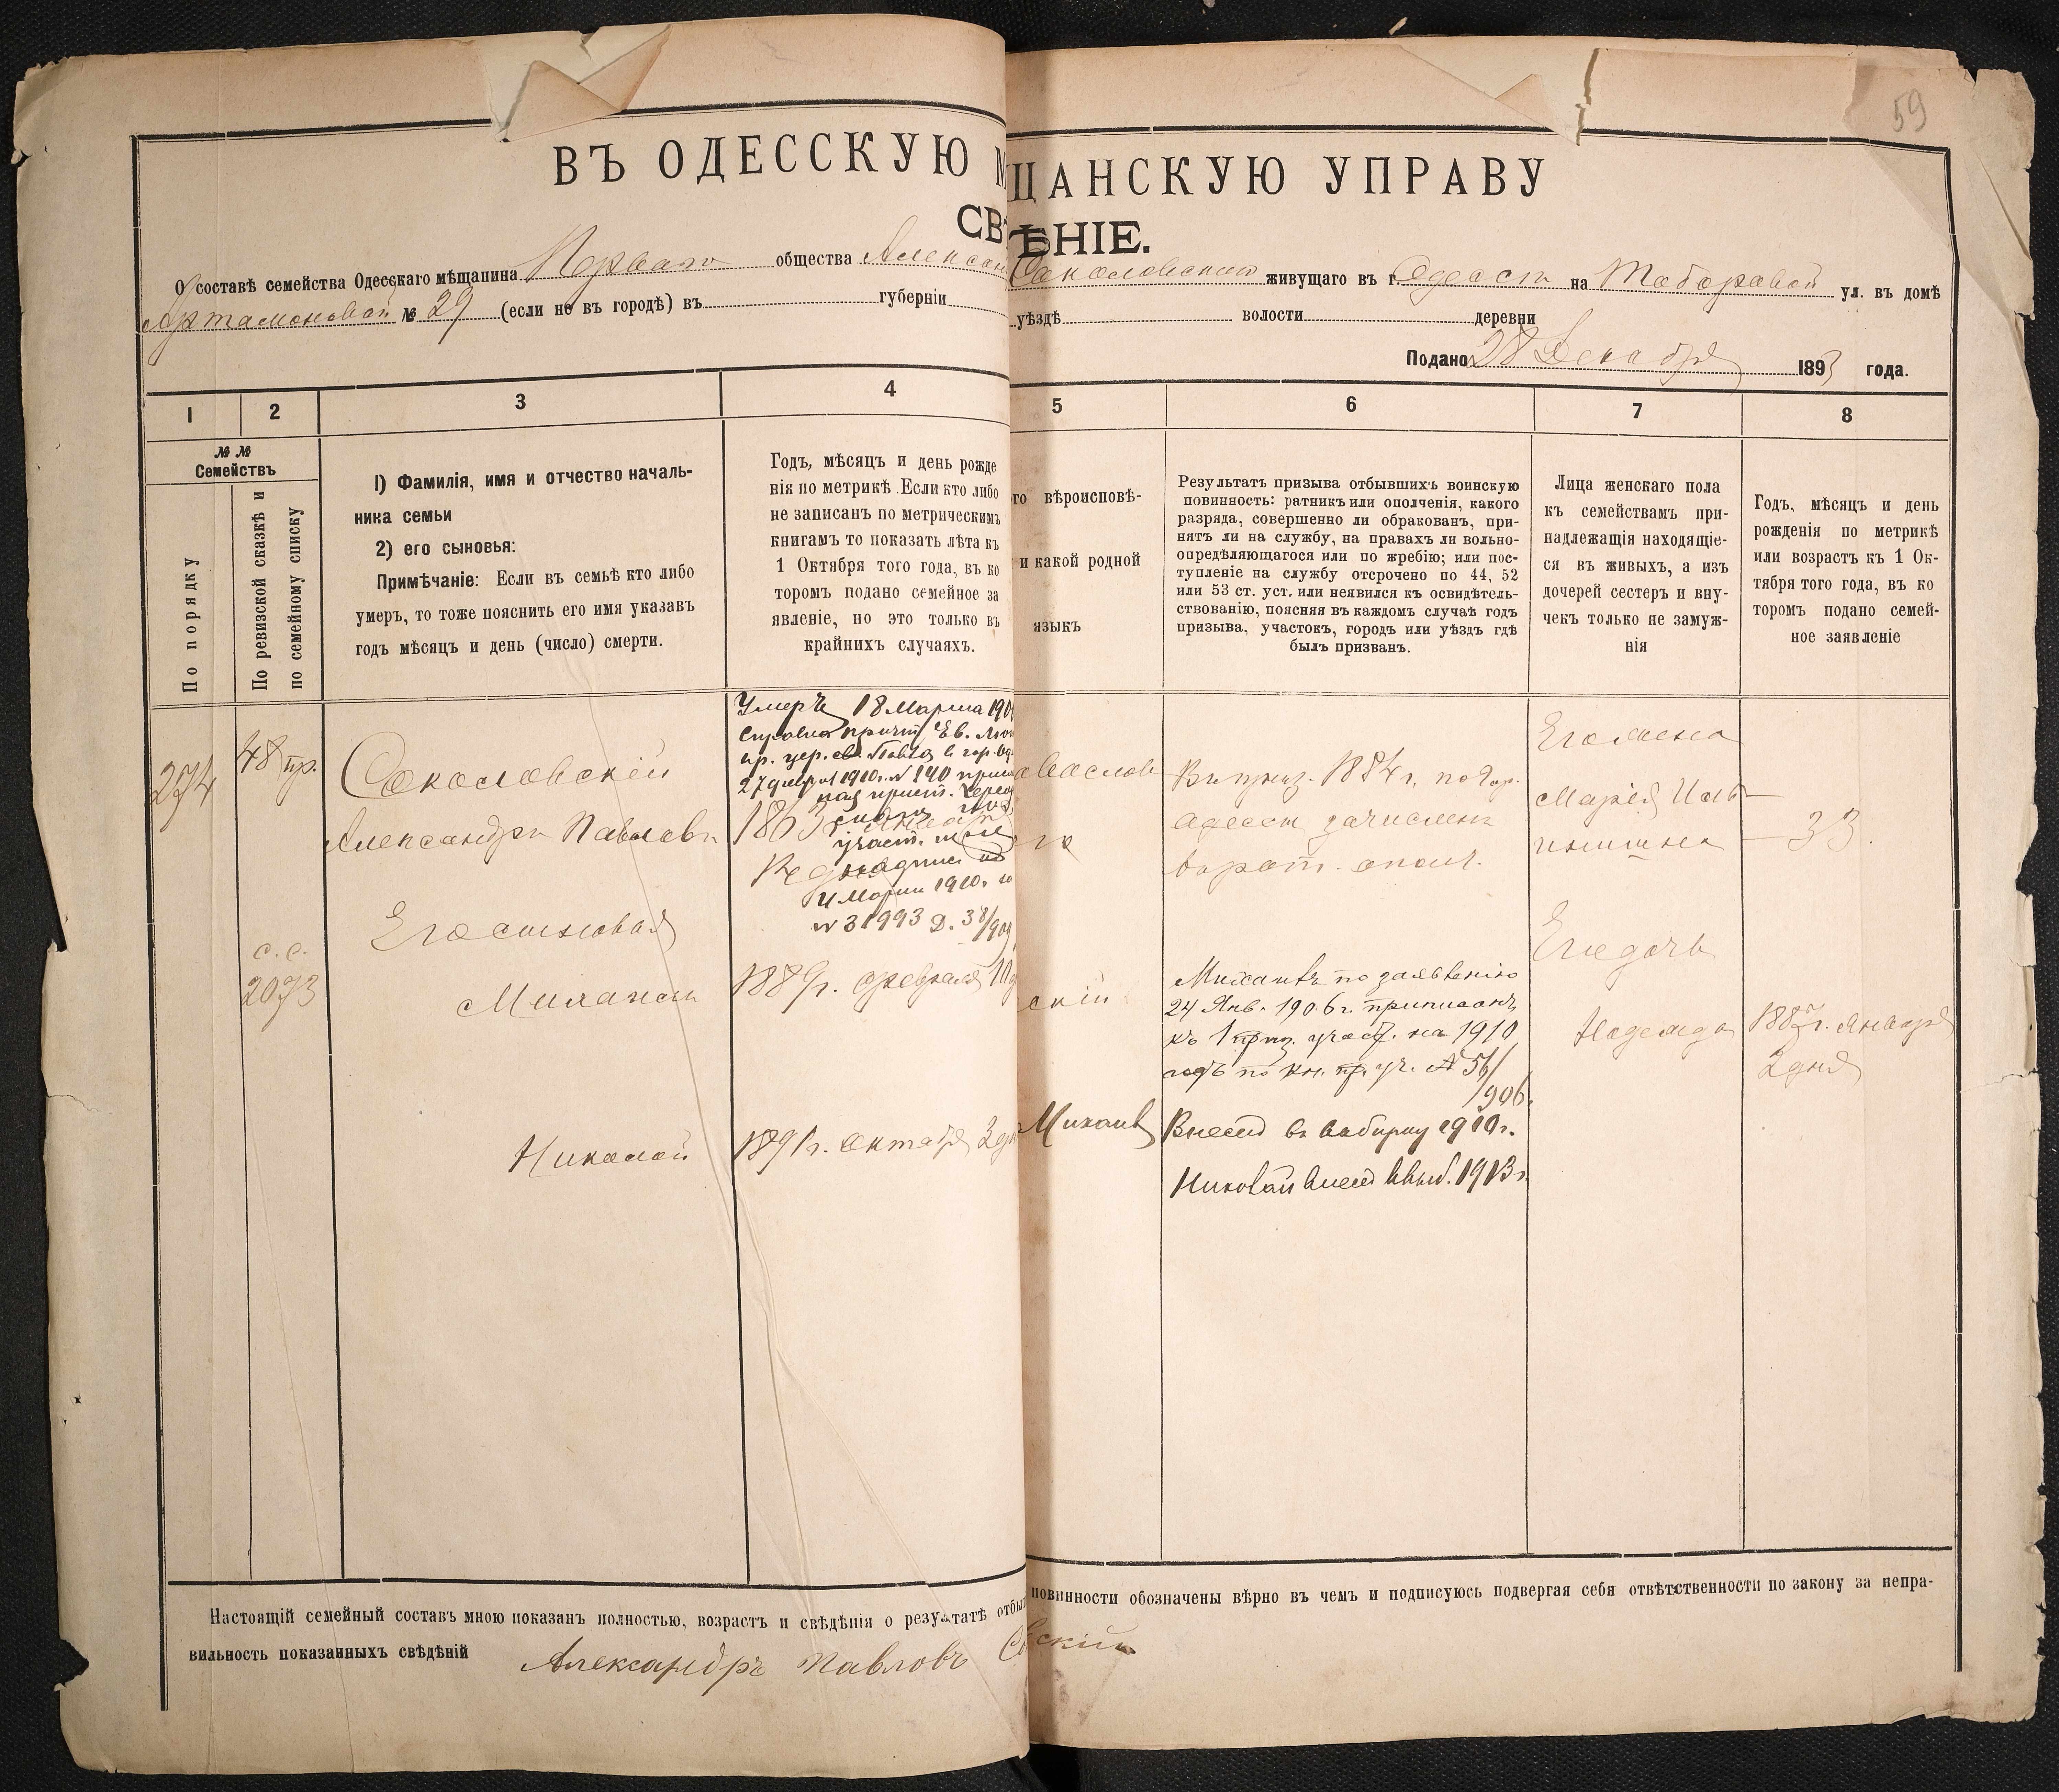 59
ВЪ ОДЕССКУЮ М ЩАНСКУЮ УПРАВУ
СВѢНІЕ.
О составѣ семейства Одесскаго мѣщанина Перваго общества Алексан Соколовскаго живущаго въ г. Одессѣ на ул. въ домѣ
Артамоновой № 29 (если не въ городѣ) въ губерніи уѣздѣ волости деревни
Подано 28 Декабря 1893 года.
1 2 3 4 5 6 7 8
№ №
Семействъ
По порядку
По ревизской сказкѣ и
по семейному списку
1) Фамилія, имя и отчество началь-
ника семьи
2) его сыновья:
Примѣчаніе: Если въ семьѣ кто либо
умеръ, то тоже пояснить его имя указавъ
годъ мѣсяцъ и день (число) смерти.
Годъ, мѣсяцъ и день рожде
нія по метрикѣ. Если кто либо
не записанъ по метрическимъ
книгамъ то показать лѣта къ
1 Октября того года, въ ко
торомъ подано семейное за
явленіе, но это только въ
крайнихъ случаяхъ.
го вѣроисповѣ-
и какой родной
языкъ
Результатъ призыва отбывшихъ воинскую
повинность: ратникъ или ополченія, какого
разряда, совершенно ли обракованъ, при-
нятъ ли на службу, на правахъ ли вольно-
опредѣляющагося или по жребію; или пос-
тупленіе на службу отсрочено по 44, 52
или 53 ст. уст. или неявился къ освидѣтель-
ствованію, поясняя въ каждомъ случаѣ годъ
призыва, участокъ, городъ или уѣздъ гдѣ
былъ призванъ.
Лица женскаго пола
къ семействамъ при-
надлежащія находящіе-
ся въ живыхъ, а изъ
дочерей сестеръ и вну-
чекъ только не замуж-
нія
Годъ, мѣсяцъ и день
рожденія по метрикѣ
или возрастъ къ 1 Ок-
тября того года, въ ко
торомъ подано семей-
ное заявленіе
274
48 пр.
с. с.
2073
Соколовскій
Александръ Павловъ
Его сыновья
Михаилъ
Николай
Умеръ 18 Марта 190
27 февраля 1910 г. № 140
участ.
4 Марта 1910 г.
№ 31993 Д. 38/909
1889 г. февраля 10 д
1891 г. октября 2 дн
авослов
скій
Михаилъ
Въ приз. 1884 г. по гор.
Одессѣ зачисленъ
въ рат. опол.
Михаилъ по заявленію
24 Янв. 1906 г. приписанъ
къ 1 приз. участ. на 1910
годъ по кн. пр. уч. № 56/
/906
Внесенъ въ выборку 1910 г.
Николай внесенъ въ выб. 1913 г.
Его жена
Марія Иль-
инишна
33.
Его дочь
Надежда
1887 г. Января
2 дня
Настоящій семейный составъ мною показанъ полностью, возрастъ и свѣдѣнія о результатѣ отбыт повинности обозначены вѣрно въ чемъ и подписуюсь подвергая себя отвѣтственности по закону за непра-
вильность показанныхъ свѣдѣній Александръ Павловъ Со вскій